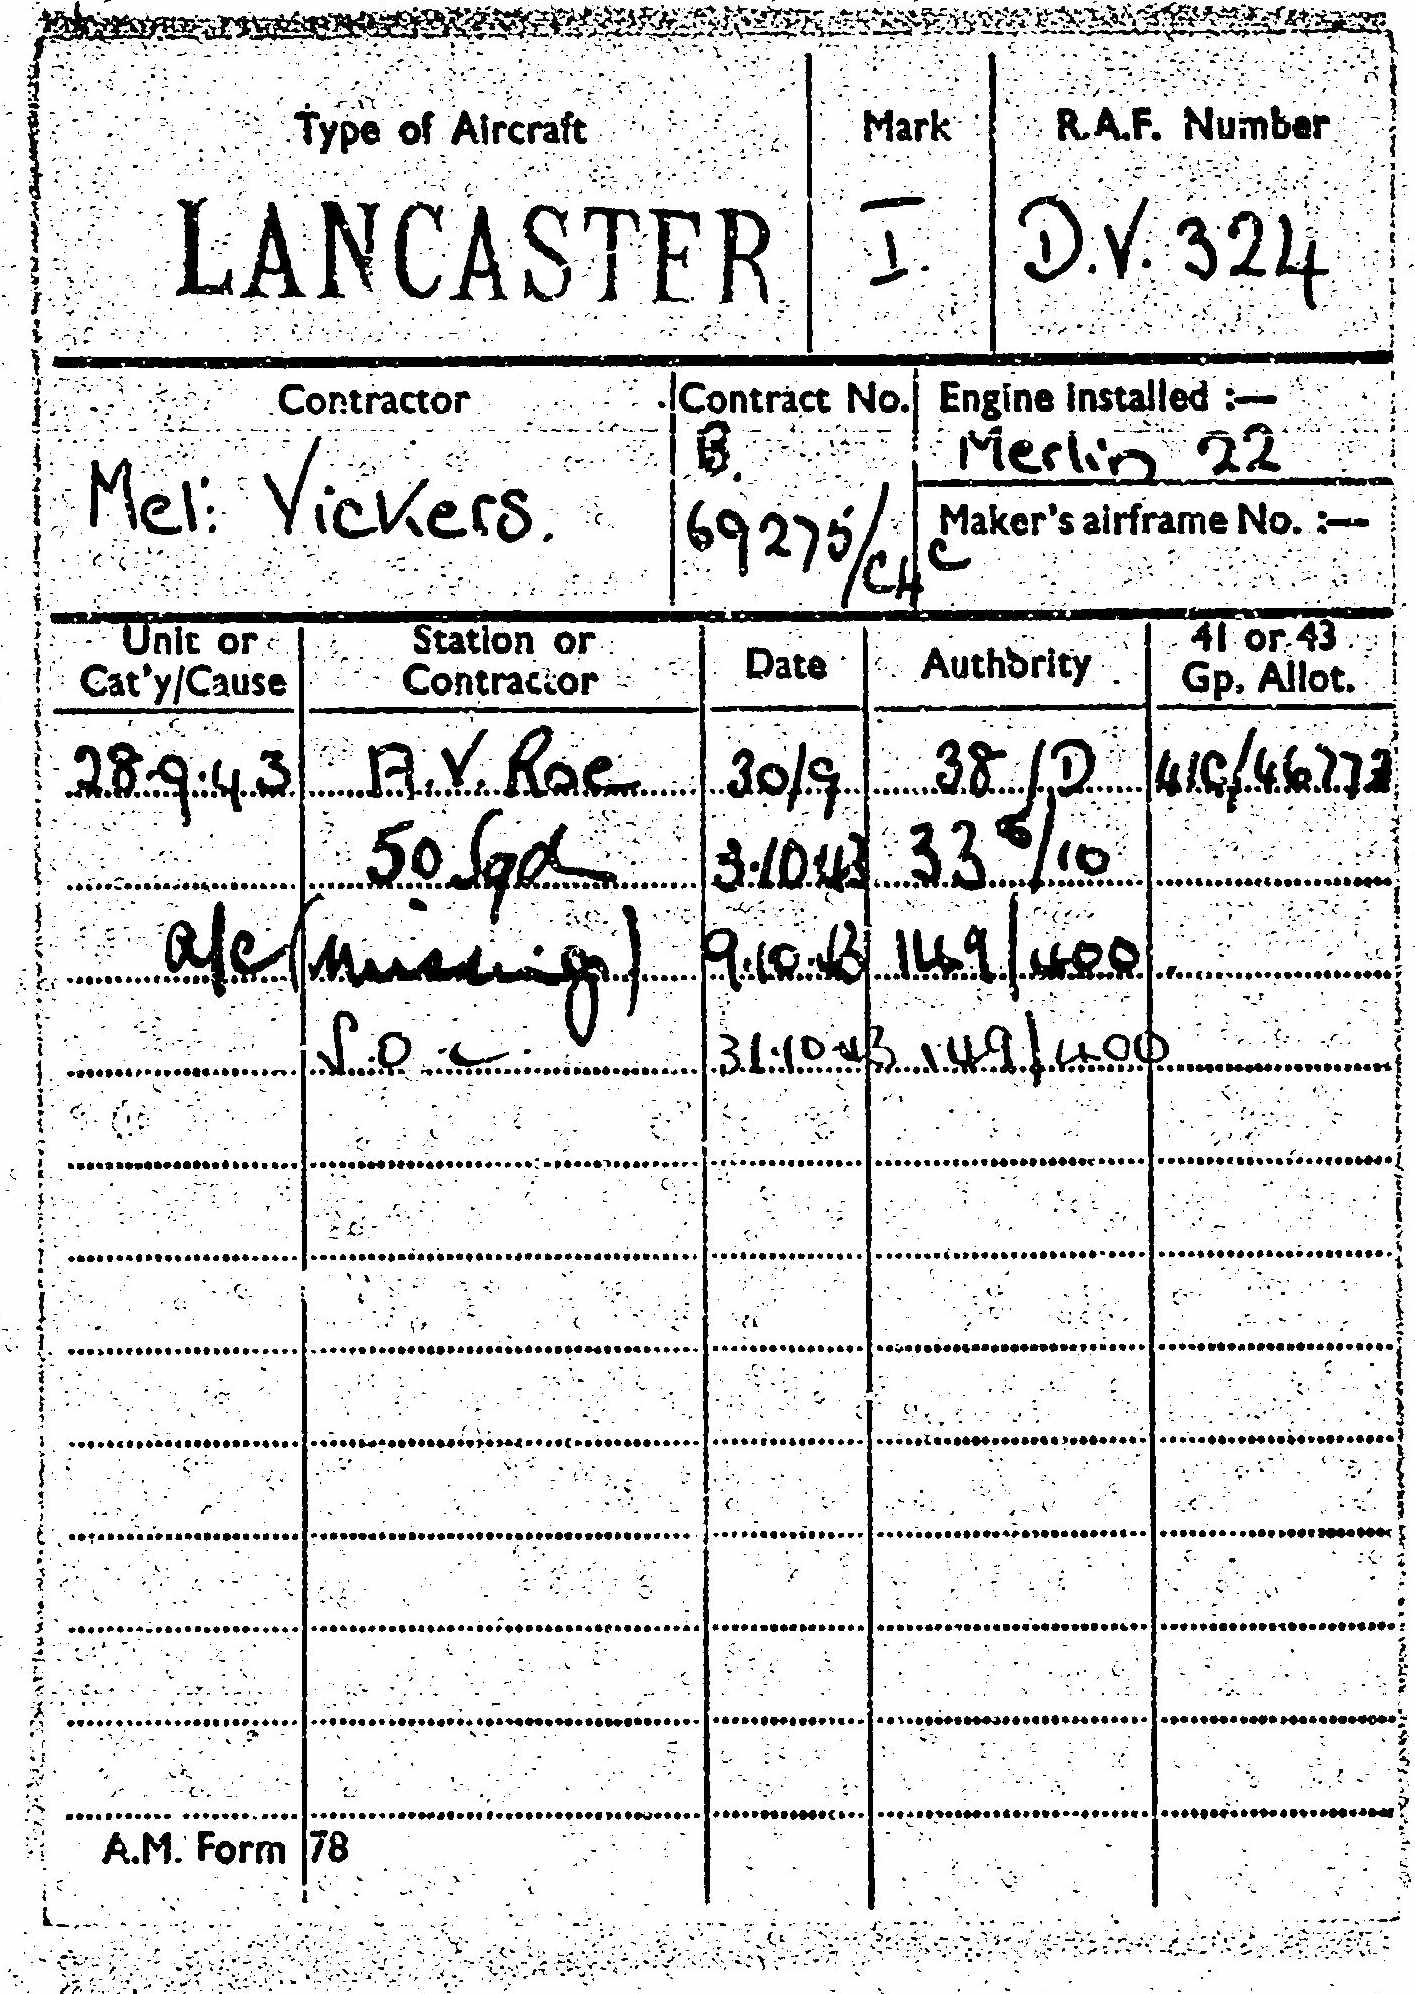 Type of Aircraft Mark R.A.F. Number
LANCASTER I. D.V. 324
Contractor Contract No. Engine installed :—
Met: Vickers. B. Merlin 22
69275/C4C Maker's airframe No. :—
Unit or Cat'y/Cause Station or Contractor Date Authority 41 or 43 Gp. Allot.
28.9.43 A.V. Roe 30/9 38/D 41G/46773
50 Sqd 3.10.43 338/10
a/c (missing) 9.10.43 149/400
S.O.C. 31.10.43 149/400
A.M. Form 78